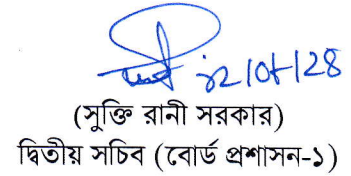 (সুক্তি রানী সরকার)
দ্বিতীয় সচিব (বোর্ড প্রশাসন-১)